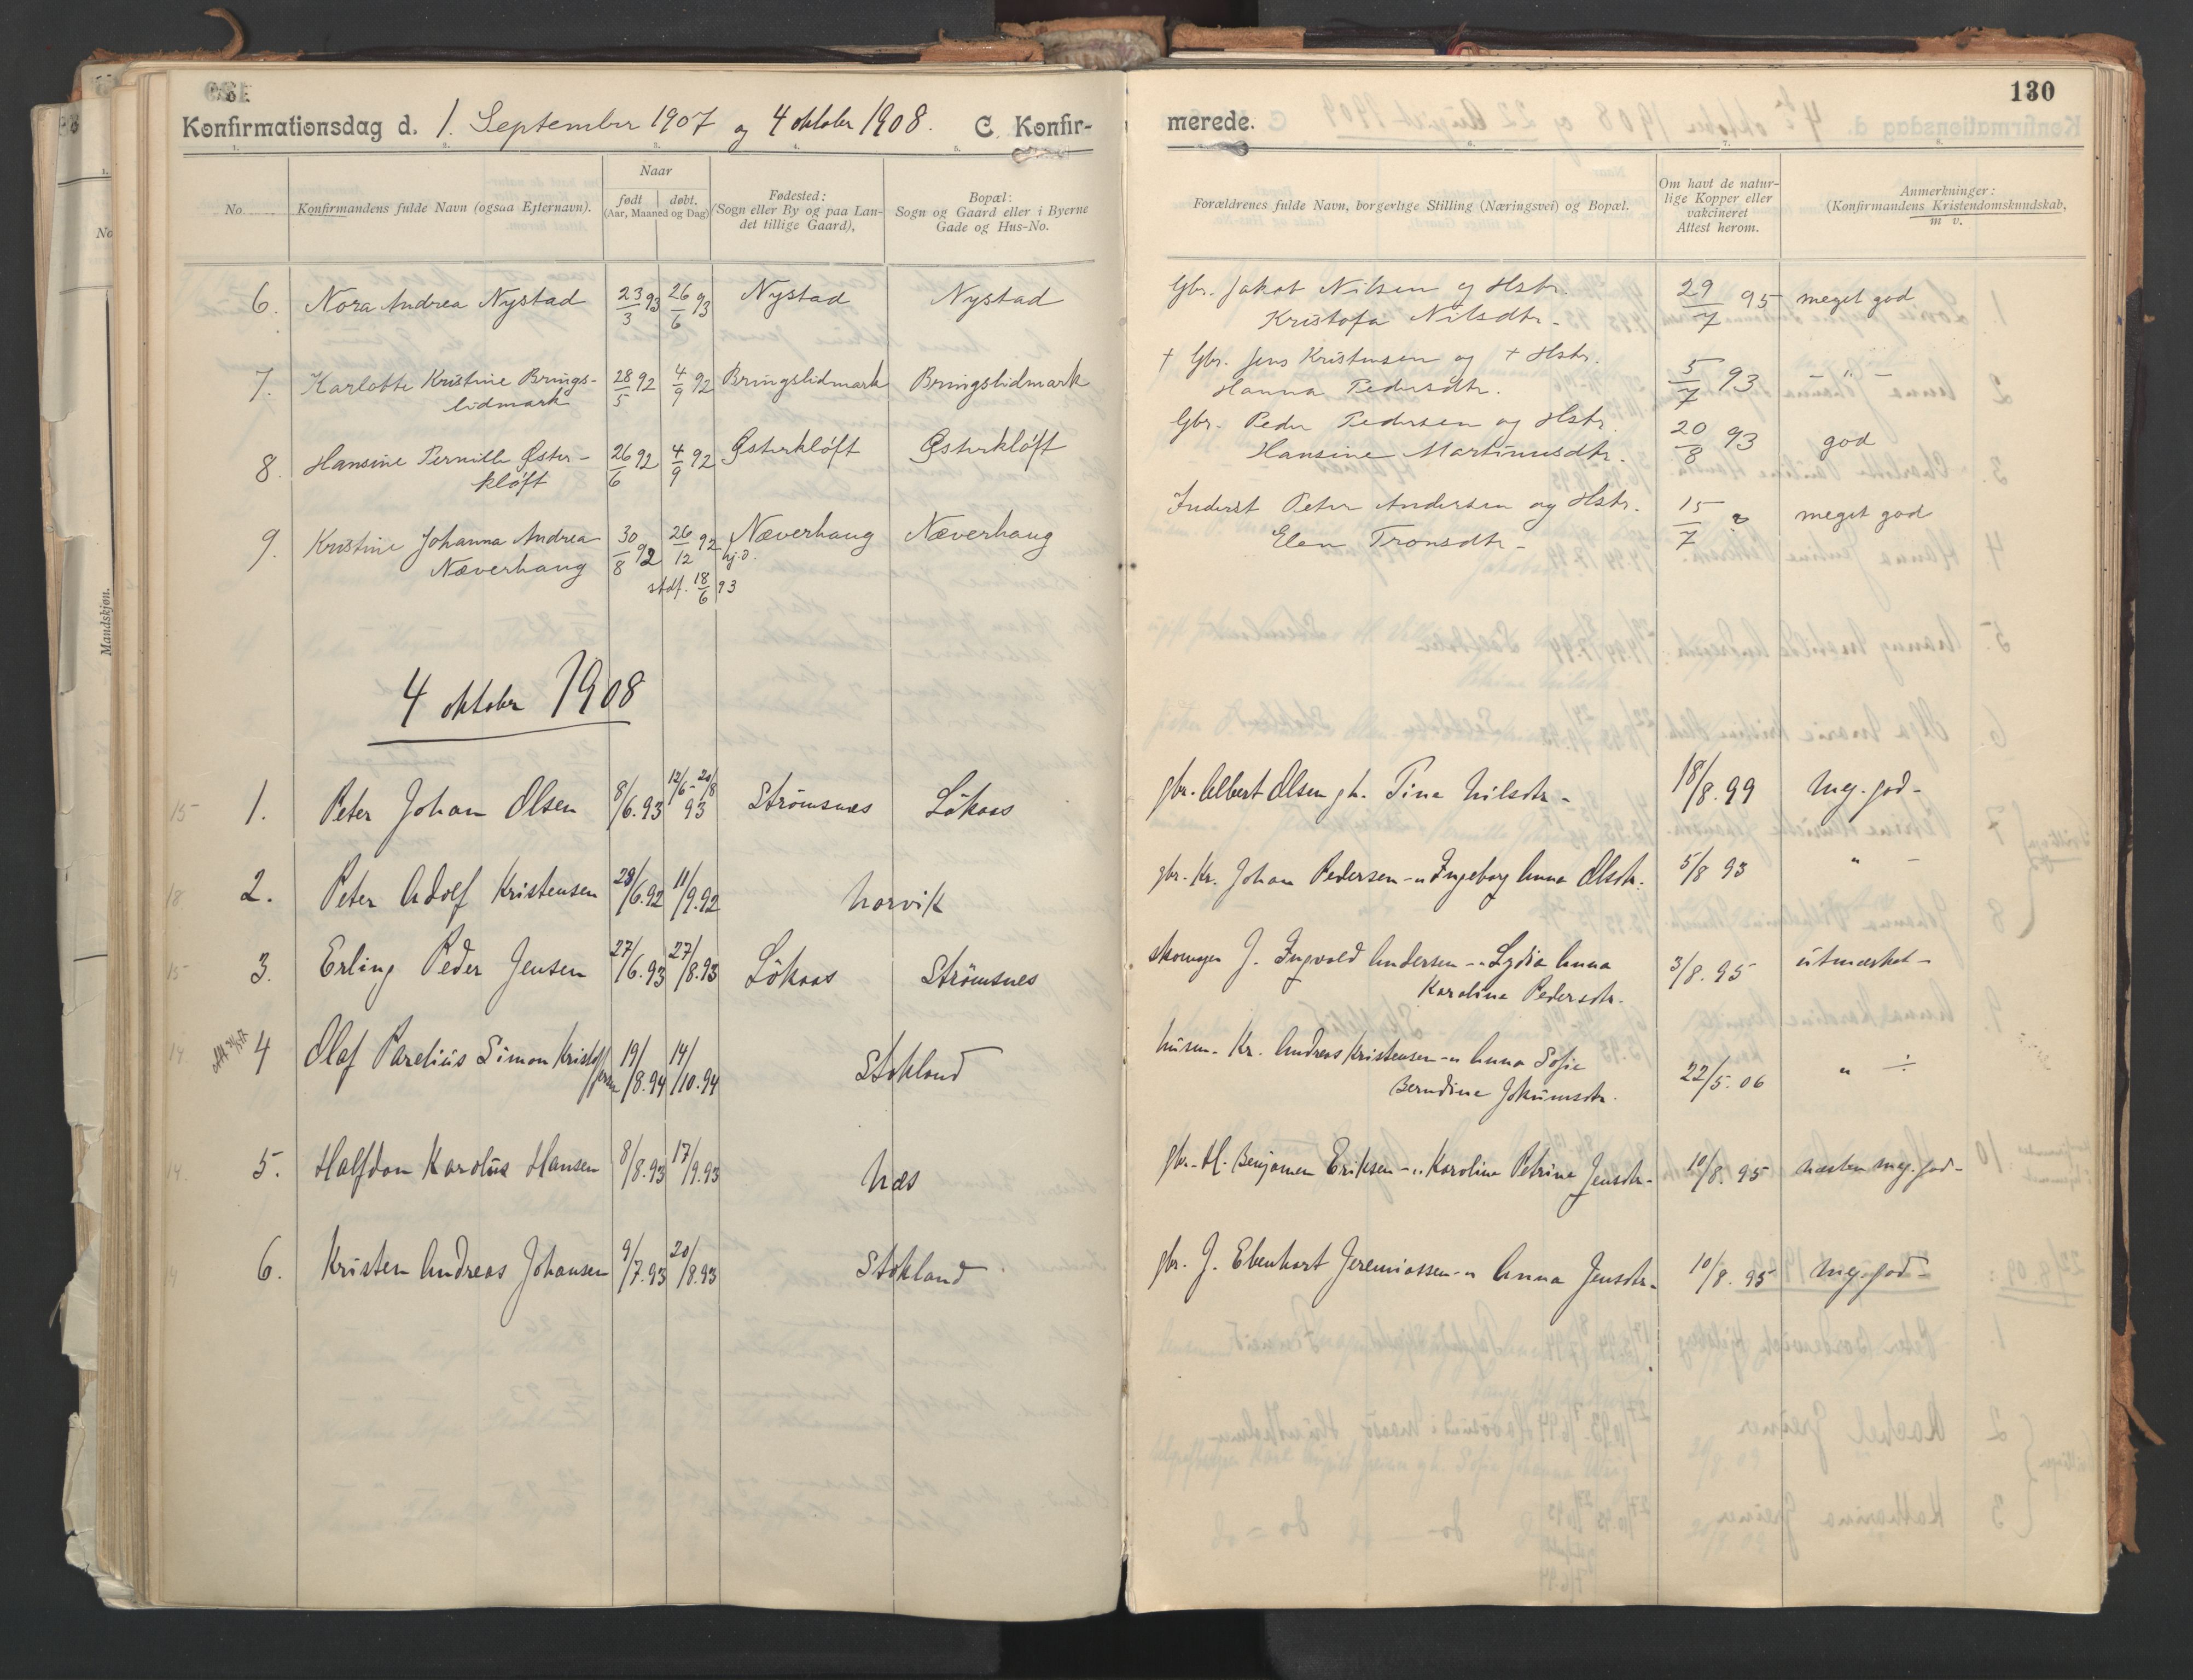 130
Konfirmationsdag d. 1. September 1907 og 4 oktober 1908. C. Konfir-
merede.
No.
Konfirmandens fulde Navn (ogsaa Efternavn).
Naar
født døbt.
(Aar, Maaned og Dag)
Fødested:
(Sogn eller By og paa Lan-
det tillige Gaard),
Bopæl:
Sogn og Gaard eller i Byerne
Gade og Hus-No.
Forældrenes fulde Navn, borgerlige Stilling (Næringsvei) og Bopæl.
Om havt de natur-
lige Kopper eller
vakcineret
Attest herom.
Anmerkninger:
(Konfirmandens Kristendomskundskab,
m v.
6. Nora Andrea Nystad 23/3 93 26/6 93 Nystad Nystad Gbr. Jakob Nilsen og Hstr. 29/7 95 meget god
Kristofa Nilsdtr.
7. Karlotte Kristine Brings- 28/5 92 4/9 92 Bringslidmark Bringslidmark + Gbr. Jens Kristensen og + Hstr. 5/7 93 - " -
lidmark Hanna Pedersdtr.
8. Hansine Pernille Øster- 26/6 92 4/9 92 Østerkløft Østerkløft Gbr. Peder Pedersen og Hstr. 20/8 93 god
kløft Hansine Martinusdtr.
9. Kristine Johanna Andrea 30/8 92 26/12 92 hj.d. Næverhaug Næverhaug Inderst Peter Andersen og Hstr. 15/7 ? meget god
Næverhaug stdf. 18/6 93 Elen Tronsdtr.
4 oktober 1908
15 1. Peter Johan Olsen 8/6.93 12/6 - 20/8 93 Strömsnes Lökaas gbr. Albert Olsen gh. Tina Nilsdtr. 18/8.99 Meg. god -
18 2. Peter Adolf Kristensen 28/6.92 11/9.92 Norvik gbr. Kr. Johan Pedersen - " Ingeborg Anna Olsdtr. 5/8 93 " -
15 3. Erling Peder Jensen 27/6.93 27/8.93 Lökaas Strömsnes J. Ingvald Andersen - " Lydia Anna 3/8.95 utmærket -
Karoline Pedersdtr.
14 4 Olaf Parelius Simon Kristoffersen 19/8.94 14/10.94 Stokland husm. Kr. Andreas Kristensen - " Anna Sofie 22/5.06 " -
Berndine Jokumsdtr.
14. 5. Halfdan Karolus Hansen 8/8.93 17/9.93 Næs gbr. H. Benjamen Eriksen - " Karoline Petrine Jensdtr. 10/8.95 næsten meg. god -
6. Kristen Andreas Johansen 9/7.93 20/8.93 Stokland gbr. J. Ebenhart Jeremiassen - " Anna Jensdtr. 10/8.95 Meg. god -
Mandskjøn.